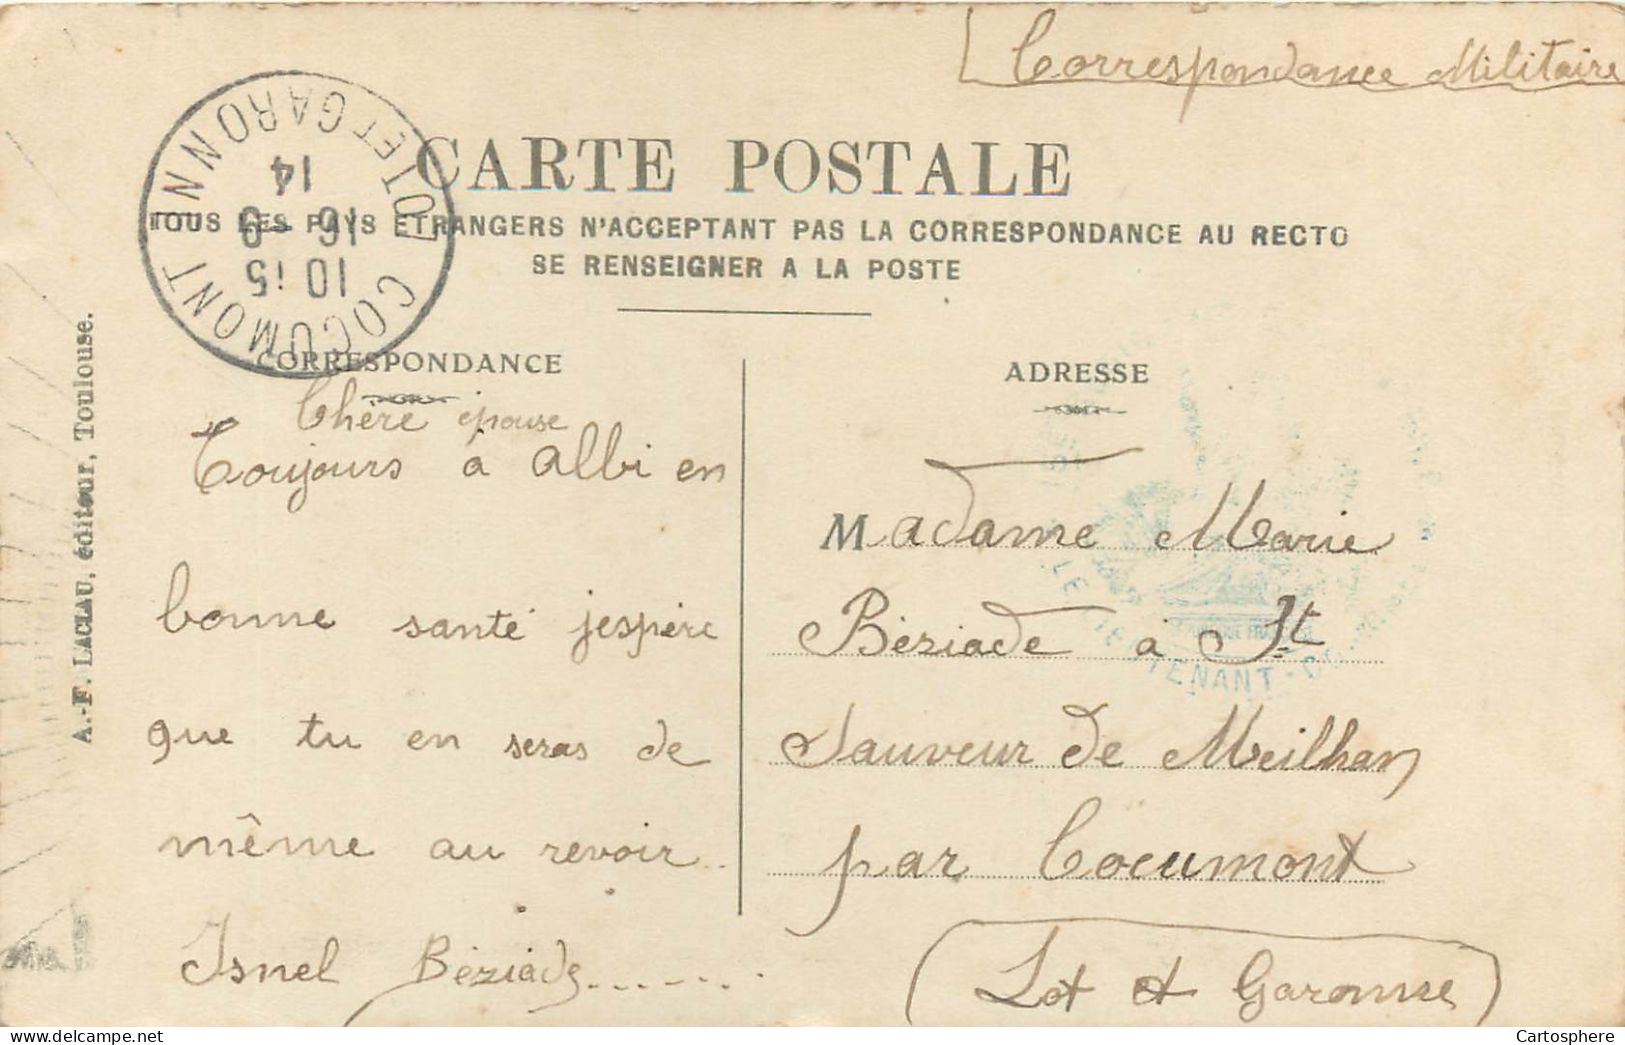 Correspondance Militaire
CARTE POSTALE
TOUS LES PAYS ETRANGERS N'ACCEPTANT PAS LA CORRESPONDANCE AU RECTO
SE RENSEIGNER A LA POSTE
COCUMONT
LOT ET GARONNE
10 15
16 - 9
14
A.-F. LACLAU, éditeur, Toulouse.
CORRESPONDANCE
Chère épouse
Toujours à Albi en
bonne santé jespère
que tu en seras de
même au revoir
Isnel Béziade......
ADRESSE
Madame Marie
Béziade à St
Sauveur de Meilhan
par Cocumont
(Lot et Garonne)
LIEUTENANT-
Cartosphere